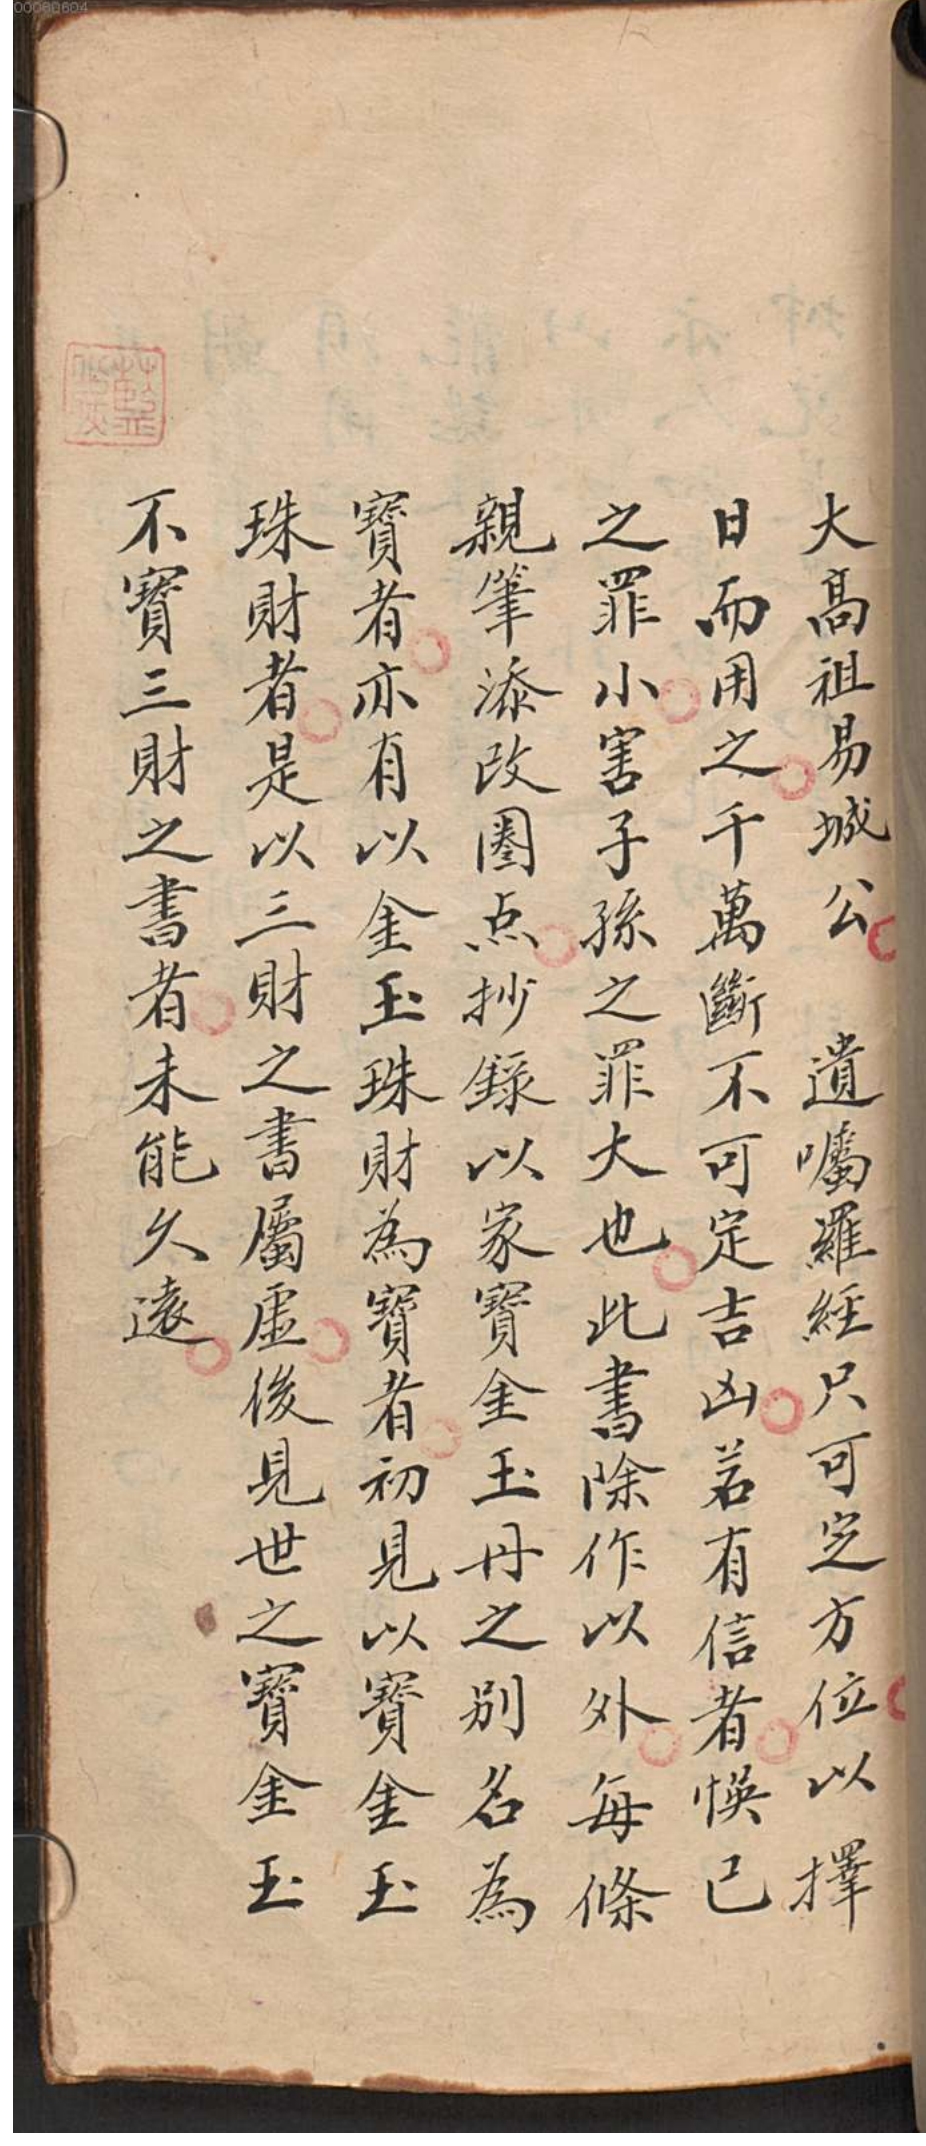 大高祖易城公　遺囑羅經尺可定方位以擇
日而用之千萬斷不可定吉凶若有信者悞已
之罪小害子孫之罪大也此書除作以外每條
親筆添改圈点抄錄以家寶金玉丹之別名為
寶者亦有以金玉珠財為寶者初見以寶金玉
珠財者是以三財之書屬虛後見世之寶金玉
不寶三財之書者未能久遠
00080604